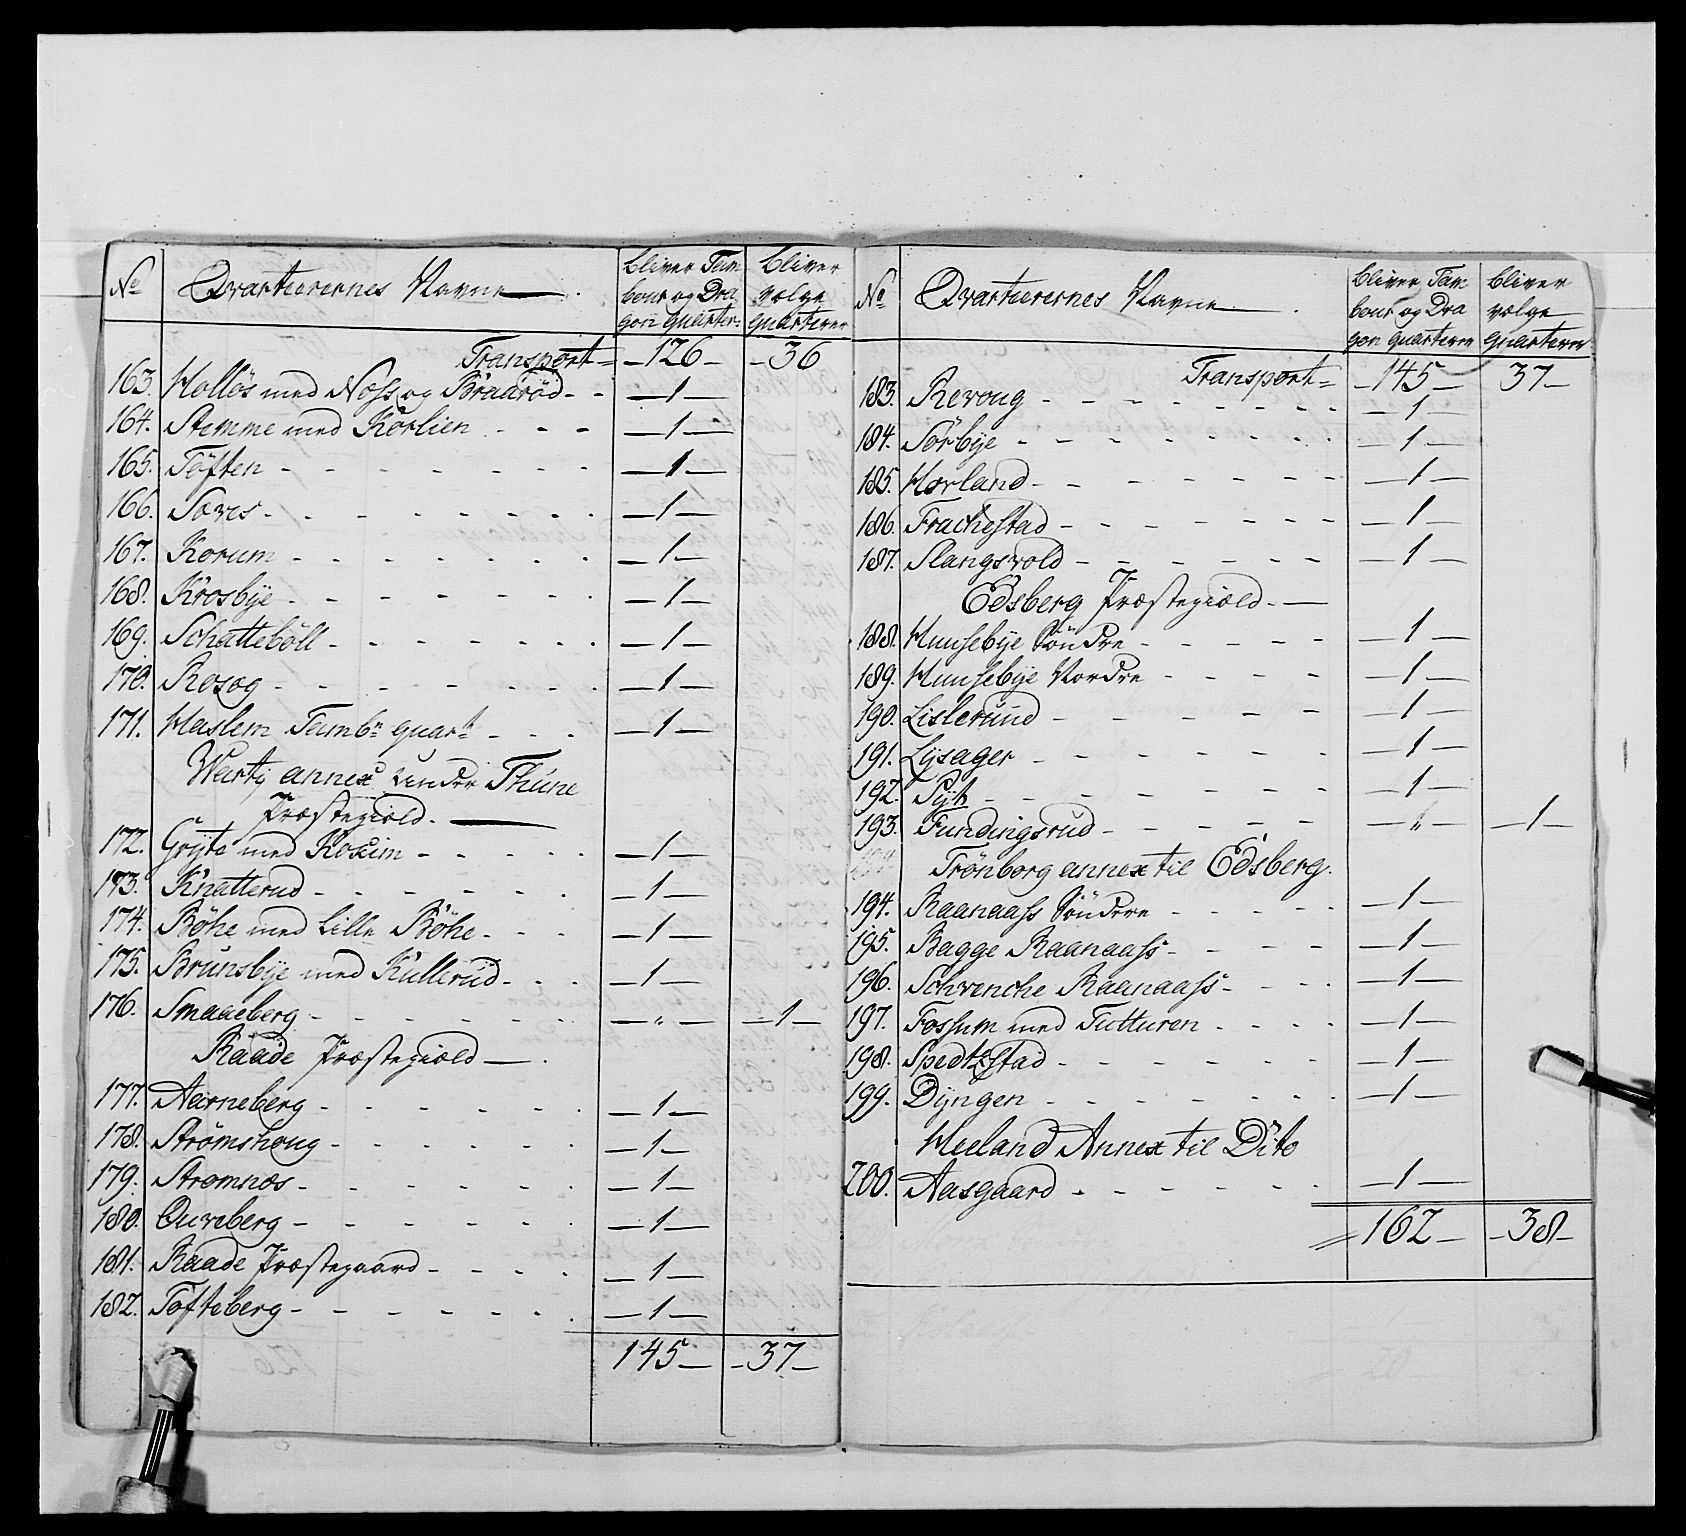 No Qvarteerernes Navne bliver Tam bliver
bour og Dra vælge
gon quarter: quarterer
Transport = 126 36
163. Holløs med Noss og Braarød 1
164. Stemme med Korlien 1
165. Tøften 1
166. 1
167. Korum 1
168. Krosbÿe 1
169. Schattebøll 1
170. Rosog 1
171. Haslem Tambr quart 1
annex under Thune
Præstegiæld.
172. Grÿte med 1
173. Knatterud 1
174. Bøhe med Lille Bøhe 1
175. Brunsbÿe med Kullerud 1
176. Smaaeberg " 1
Raade Præstegiæld
177. Aarneberg 1
178. Strømshoug 1
179. Strømnæs 1
180. Oureberg 1
181. Raade Præstegaard 1
182. Tofteberg 1
145 37
No Qvarteerernes Navne bliver Tam bliver
bour og Dra vælge
gon quarterer quarterer
Transport = 145 37
183. Revoug 1
184. Sørbÿe 1
185. Hørland 1
186. Frachestad 1
187. Slangsvold 1
Edsberg Præstegiæld.
188. Huusebÿe Søndre 1
189. Huusebÿe Nordre 1
190. Lislerund 1
191. Lÿsager 1
192. 1
193. Fundingsrud " 1
Trönborg annex til Edsberg.
194. Raanaass Søndere 1
195. Bagge Raanaass 1
196. Schrenche Raanaass 1
197. Fossum med Tutturen 1
198. Spedtzstad 1
199. Dÿngen 1
Heeland Annex til Dito
200. Aasgaard 1
162 38